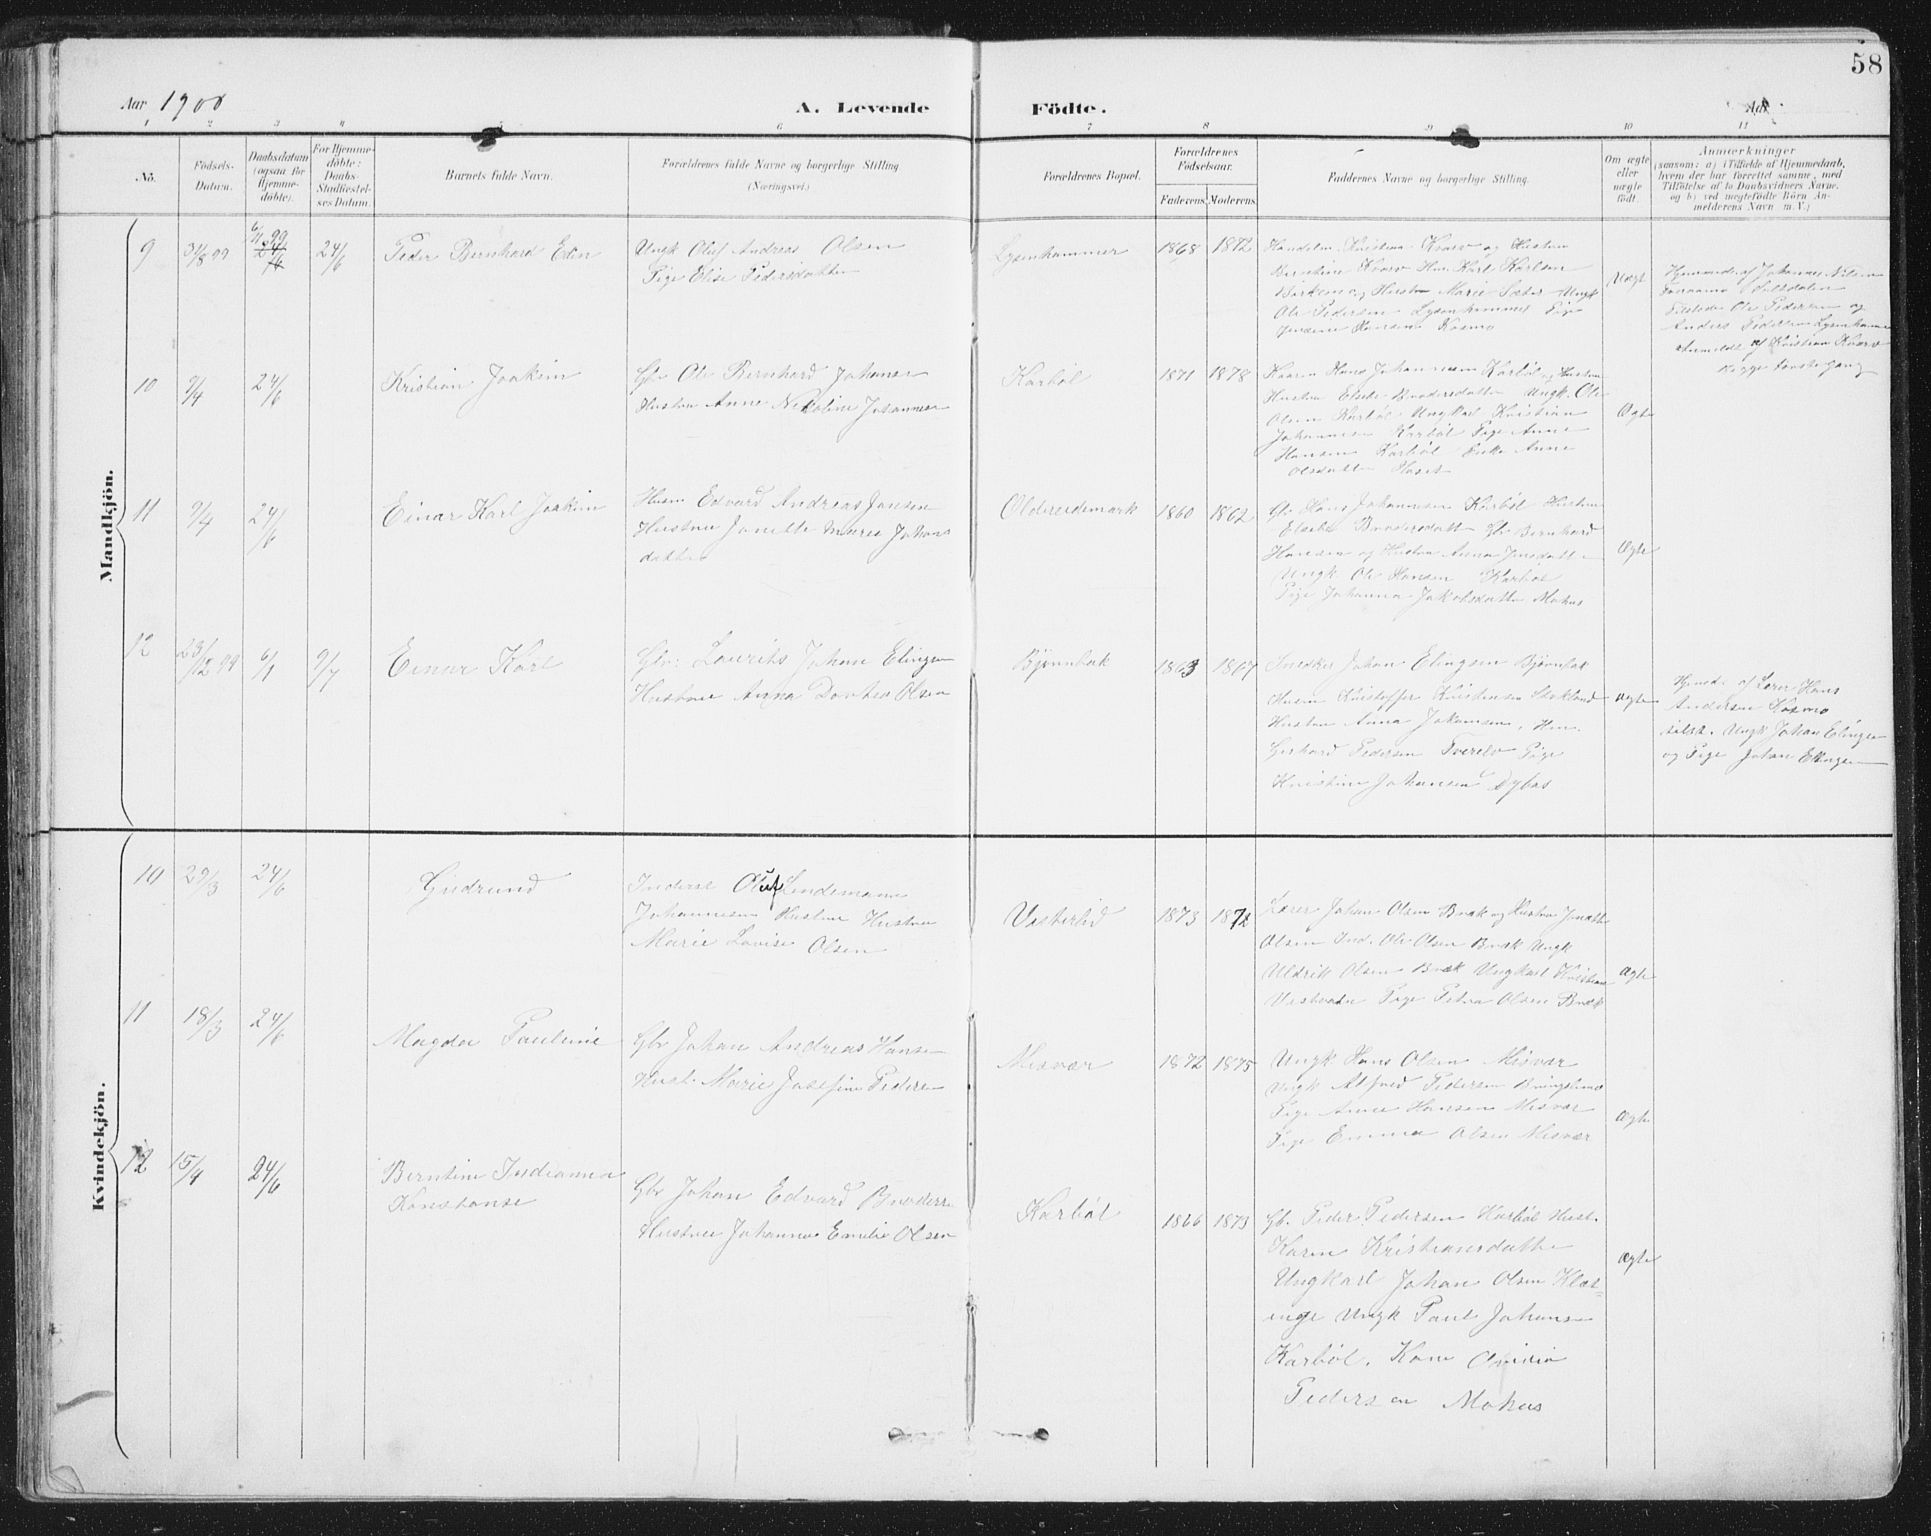 58
Aar 1900
A. Levende Födte.
Aar
1 2 3 4 5 6 7 8 9 10 11
No.
Födsels-Datum.
Daabsdatum (ogsaa for Hjemme-döbte).
For Hjemme-döbte: Daabs-Stadfæstel-ses Datum.
Barnets fulde Navn.
Forældrenes fulde Navne og borgerlige Stilling (Næringsvei.)
Forældrenes Bopæl.
Forældrenes Födselsaar.
Faderens. Moderens.
Faddernes Navne og borgerlige Stilling.
Om ægte eller uægte födt.
Anmærkninger
(saasom: a) i Tilfælde af Hjemmedaab,
hvem der har forrettet samme, med
Tilföielse af to Daabsvidners Navne.
og b) ved uægtefödte Börn An-
melderens Navn m. V.)
Mandkjön.
9 31/8 99 24/6 Peder Bernhard Edin
Ungk Oluf Andreas Olsen
Pige Elise Pedersdatter
Lysenhammer 1868 1872
Kristian Kvarv og Hustru
Berntine Kvarv Hm. Karl Karlsen
og Hustru Marie Ungk
Ole Pedersen Lysenhammer Pige
Hansen Kosmo
Uægt
Hjemmed af Johannes Nilsen
Ole Pedersen og
Anders Pedersen Lysenhammer
Anmeldt af Kristian Kvarv
begge første gang
10 9/4 24/6 Kristian Joakim
Gbr Ole Bernhard Johansen
Hustru Anne Nikoline Johannesen
Karbøl 1871 1878
Hans Johannesen Karbøl og Hustru
Hustru Brodersdatter Ungk. Ole
Olsen Karbøl Ungkarl Kristian
Johannesen Karbøl Pige Anne
Hansen Karbøl Enke Anne
Olsdatter
Ægte
11 9/4 24/6 Einar Karl Joakim
Husm Edvard Andreas Jansen
Hustru Janette Marie Johans
datter
Oldereidemark 1860 1862
Gbr Hans Johannesen Karbøl Hustru
Brodersdatter Gbr Bernhard
Hansen og Hustru Anna Jensdatter
Ungk Ole Hansen Karbøl
Pige Johanna Jakobsdatter Mohus
Ægte
12 23/12 99 6/1 9/7 Einar Karl
Gbr: Laurits Johan Elingsen
Hustru Anna Dortea Olsen
Bjørnbak 1863 1867
Snedker Johan Elingsen Bjørnbak
Husm Kristoffer Kristensen Stokland
Hustru Anna Johansen, Hm.
Gerhard Pedersen Tverelv Pige
Kristine Johansen Dybas
Ægte
Hjemmed af Lærer Hans
Andersen Kosmo
tilst. Ungk Johan Elingsen
og Pige Johan Elingsen
Kvindekjön.
10 29/3 24/6 Gudrund
Inderst Oluf Lindemann
Johannesen Hustru Hustru
Marie Lovise Olsen
Vesterlid 1873 1872
Lærer Johan Olsen Bræk og Hustru
Olsen Ind. Ole Olsen Bræk Ungk
Uldrik Olsen Bræk Ungkarl Kristian
Pige Petra Olsen Bræk
Ægte
11 18/3 24/6 Magda Pauline
Gbr Johan Andreas Hansen
Hust. Marie Josefine Pedersen
Misvær 1872 1875
Ungk Hans Olsen Misvær
Ungk Alfred Pedersen
Pige Anna Hansen Misvær
Pige Emma Olsen Misvær
Ægte
12 15/4 24/6 Berntine Indianna
Konstanse
Gbr Johan Edvard Brodersen
Hustru Johanna Emilie Olsen
Karbøl 1866 1873
Gb. Peder Pedersen Karbøl Hust.
Karen Kristiansdatter
Ungkarl Johan Olsen Klæt-
inge Ungk Paul Johansen
Karbøl. Kone
Pedersen Mohus
Ægte